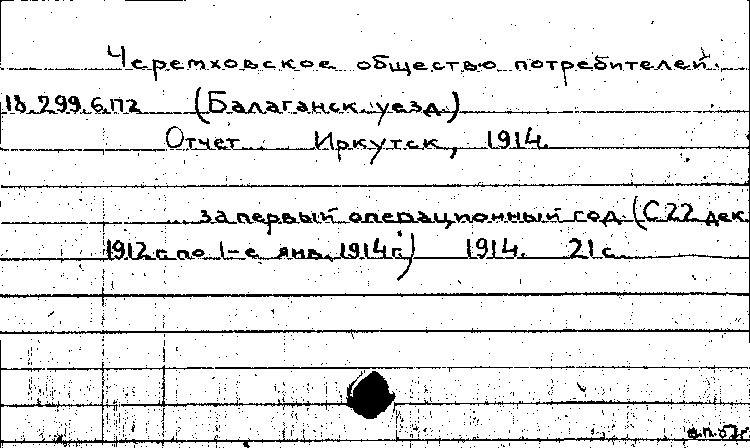 Черемховское общество потребителей.
18.299.6.112 (Балаганск. уезд.)
Отчет... Иркутск, 1914.
... за первый операционный год. (С 22 дек.
1912 г. по 1-е янв. 1914 г.) 1914. 21 с.